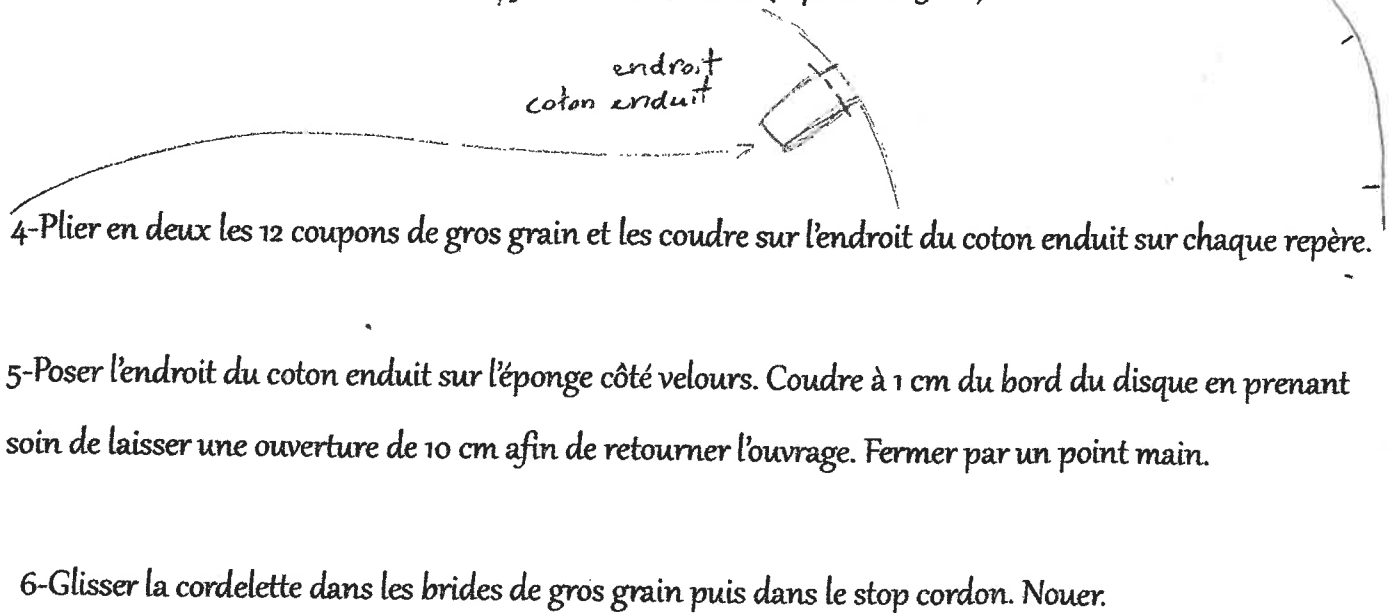 endroit
coton enduit
4-Plier en deux les 12 coupons de gros grain et les coudre sur l'endroit du coton enduit sur chaque repère.
5-Poser l'endroit du coton enduit sur l'éponge côté velours. Coudre à 1 cm du bord du disque en prenant
soin de laisser une ouverture de 10 cm afin de retourner l'ouvrage. Fermer par un point main.
6-Glisser la cordelette dans les brides de gros grain puis dans le stop cordon. Nouer.